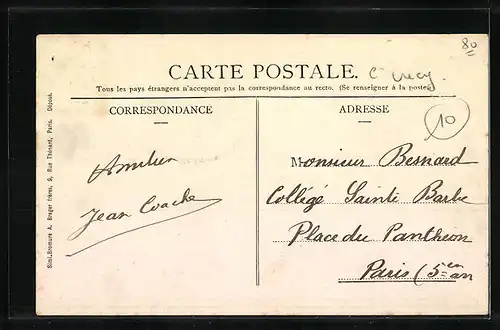 80
CARTE POSTALE.
Crécy.
Tous les pays étrangers n'acceptent pas la correspondance au recto. (Se renseigner à la poste)
CORRESPONDANCE
ADRESSE
10
Jean Coache
Monsieur Besnard
Collège Sainte Barbe
Place du Panthéon
Paris (5=en arr
Simi-Bromure A. Breger frères, 9, Rue Thénard, Paris. Déposé.